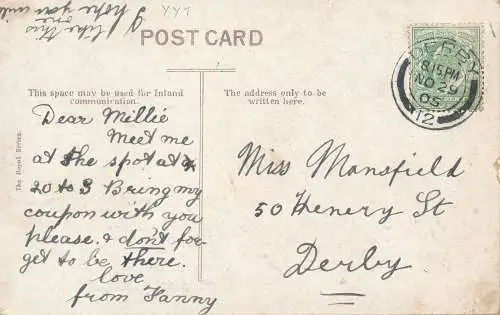 I hope you will
like this
one
YY1
POST CARD
This space may be used for Inland
communication.
The address only to be
written here.
The Royal Series.
DERBY
8.15 PM
NO 29
05
12
Dear Millie
Meet me
at the spot at
20 to 3 Bring my
coupon with you
please. & don't for-
get to be there.
love
from Fanny
Miss Mansfield
50 Henery St
Derby